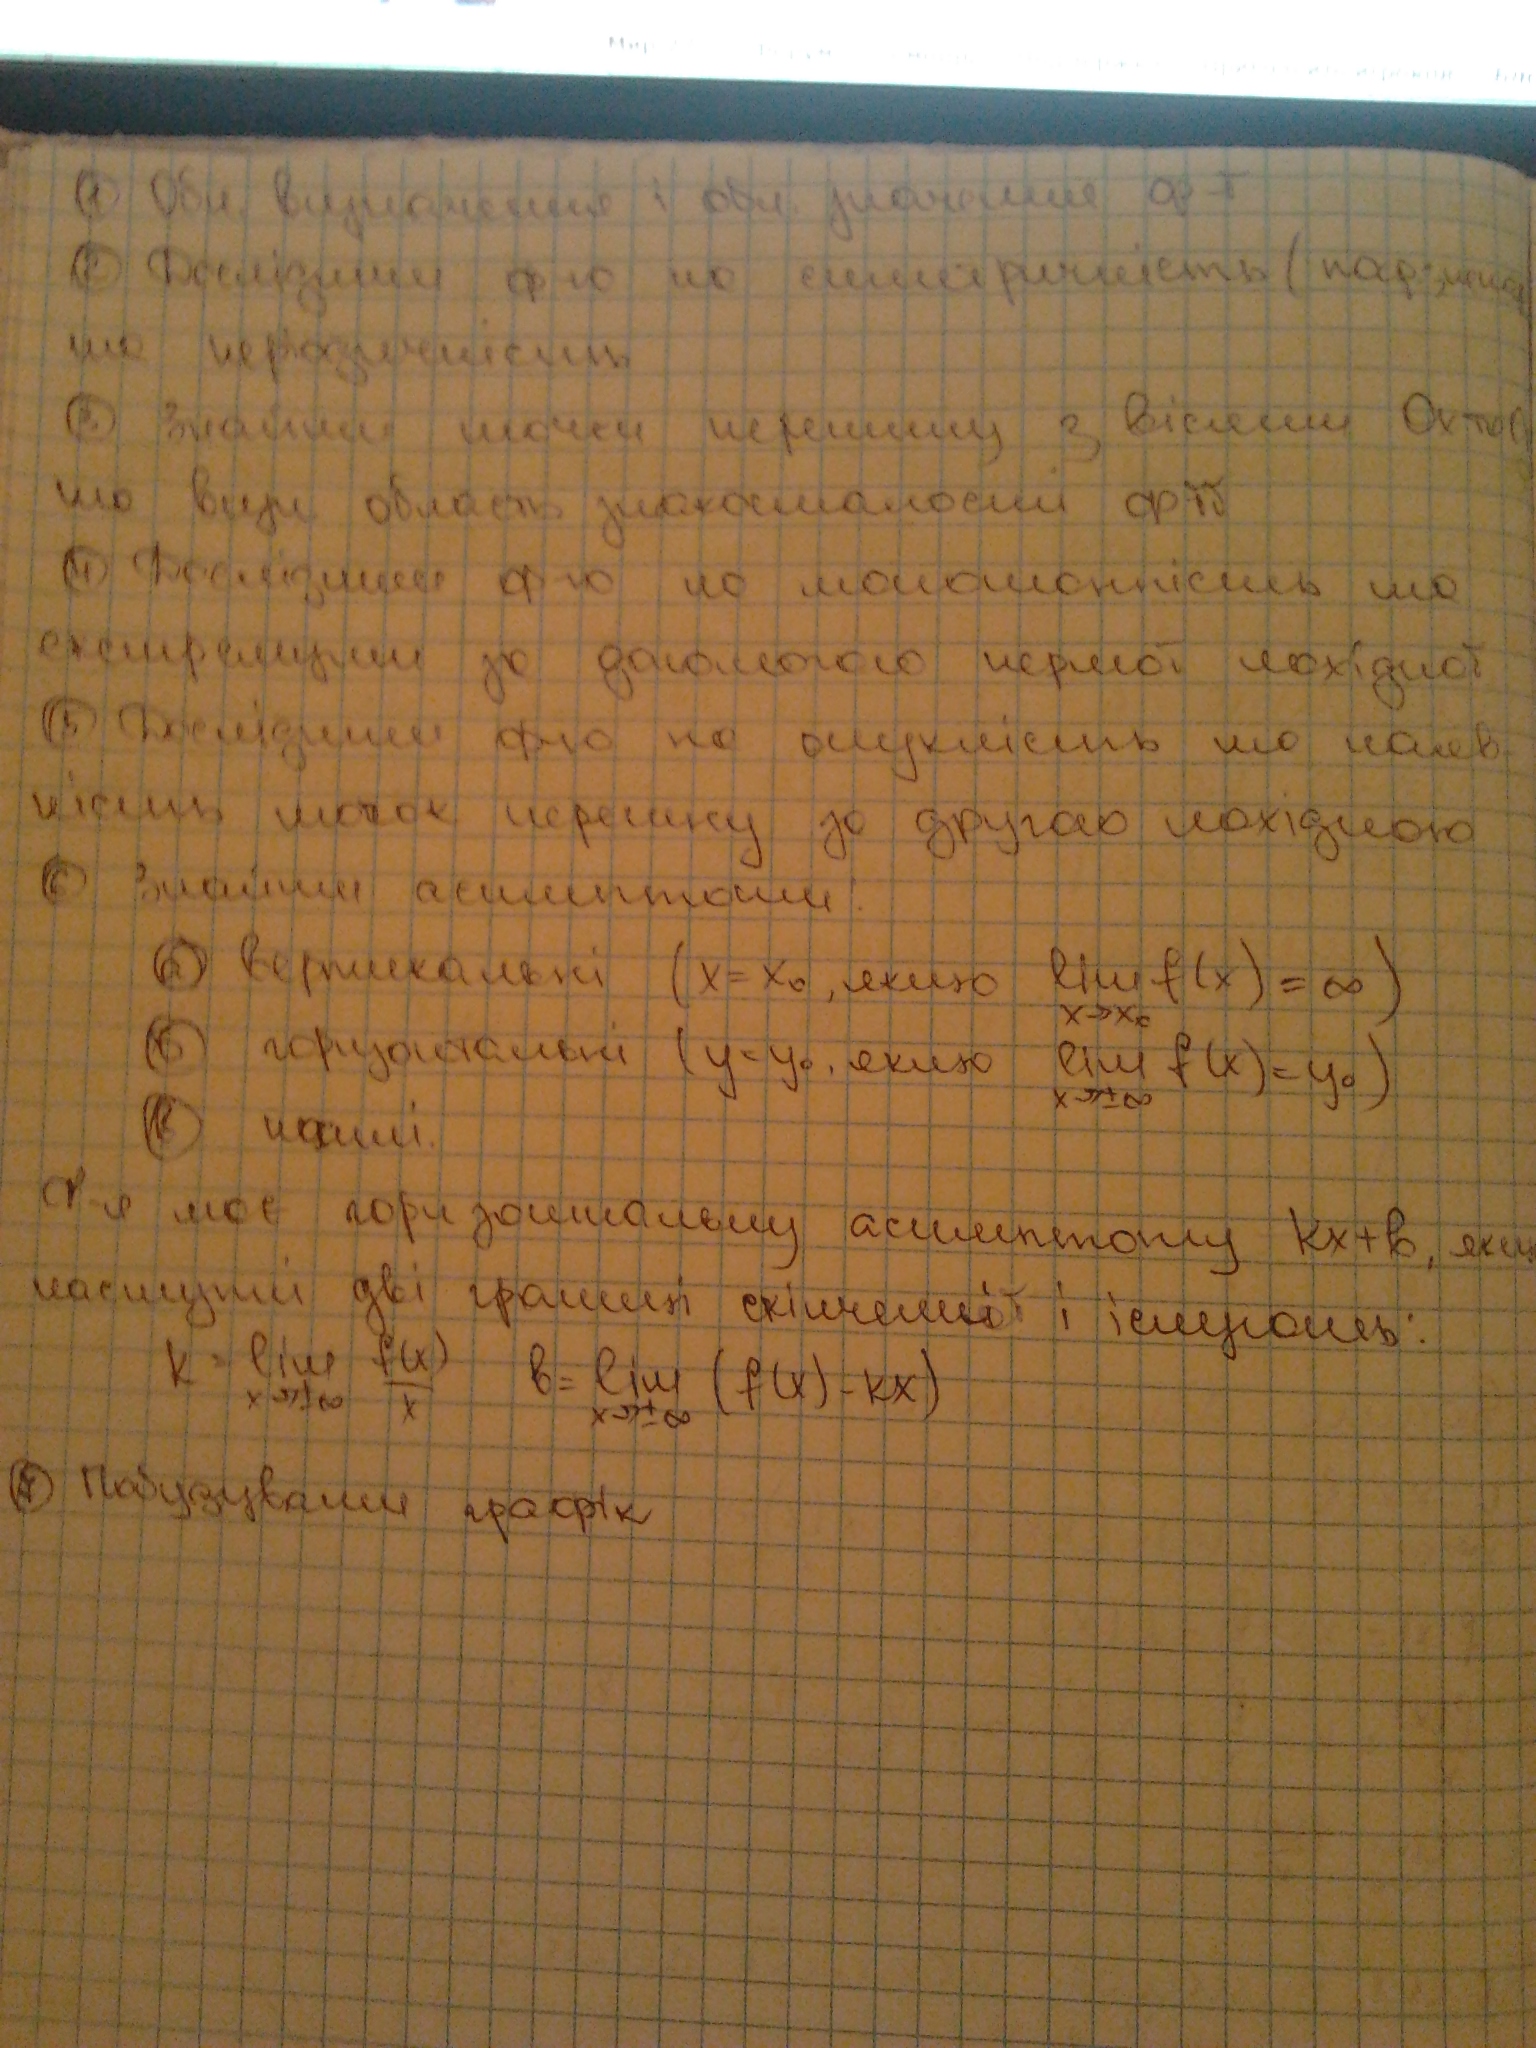 ① Обл. визначення і обл. значення ф-ї
② Дослідити ф-ю на симетричність (пар.,
та періодичність
③ Знайти точки перетину з вісями Ох та
та визн область знакосталості ф-ії
④ Дослідити ф-ю на монотонність та
екстремуми за допомогою першої похідної
⑤ Дослідити ф-ю на опуклість та наяв
ність точок перегину за другою похідною
⑥ Знайти асимптоти:
а) вертикальні (x = x₀, якщо lim f(x) = ∞)
x→x₀
б) горизонтальні (y = y₀, якщо lim f(x) = y₀)
x→±∞
в) похилі.
Ф-я має горизонтальну асимптоту kx+b, якщ
наступні дві границі скінченної і існують:
k = lim f(x)/x b = lim (f(x) - kx)
x→±∞ x→±∞
⑦ Побудувати графік